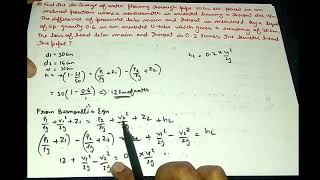 Find the discharge of water flowing through pipe 30cm dia. placed in an
inclined position where a venturimeter is inserted having a throat dia 15cm
The difference of pressure b/w main and throat is measured by a liquid
of sp. gravity 0.6 in an inverted U-tube which gives a reading of 30cm
The loss of head b/w main and throat is 0.2 times the kinetic head
the pipe?
d1 = 30cm
d2 = 15cm
x = 30cm
hL = 0.2 × v1²/2g
h = x(1 - Sl/So) = (P1/ρg + z1) - (P2/ρg + z2)
30(1 - 0.6/1) = 12cm of water
From Bernoulli's Eqn
P1/ρg + v1²/2g + z1 = P2/ρg + v2²/2g + z2 + hL
(P1/ρg + z1) - (P2/ρg + z2) + v1²/2g - v2²/2g = hL
12 + v1²/2g - v2²/2g = 0.2 × v1²/2g